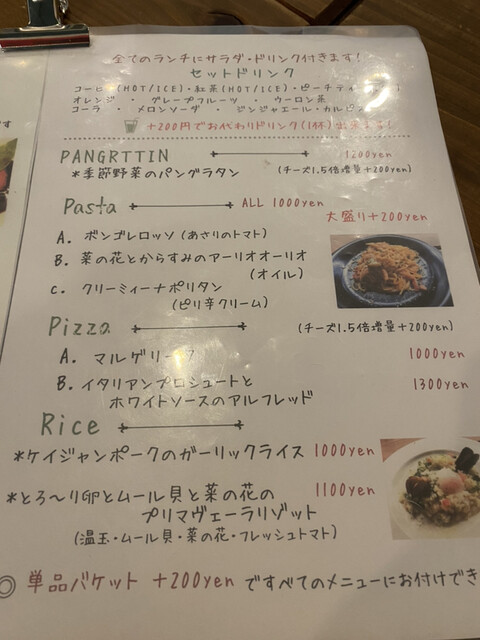 全てのランチにサラダ・ドリンク付きます!
セットドリンク
コーヒー(HOT/ICE)・紅茶(HOT/ICE)・ピーチティ
オレンジ ・ グレープフルーツ ・ ウーロン茶
コーラ ・ メロンソーダ ・ ジンジャエール・カルピス
+200円でお代わりドリンク(1杯)出来ます!
PANGRTTIN 1200yen
*季節野菜のパングラタン (チーズ1.5倍増量+200yen)
Pasta ALL 1000yen
大盛り+200yen
A. ボンゴレロッソ(あさりのトマト)
B. 菜の花とからすみのアーリオオーリオ
(オイル)
C. クリーミィーナポリタン
(ピリ辛クリーム)
Pizza (チーズ1.5倍増量+200yen)
A. マルゲリータ 1000yen
B. イタリアンプロシュートと 1300yen
ホワイトソースのアルフレッド
Rice
*ケイジャンポークのガーリックライス 1000yen
*とろ〜り卵とムール貝と菜の花の 1100yen
プリマヴェーラリゾット
(温玉・ムール貝・菜の花・フレッシュトマト)
◎ 単品バケット +200yen ですべてのメニューにお付けでき
す